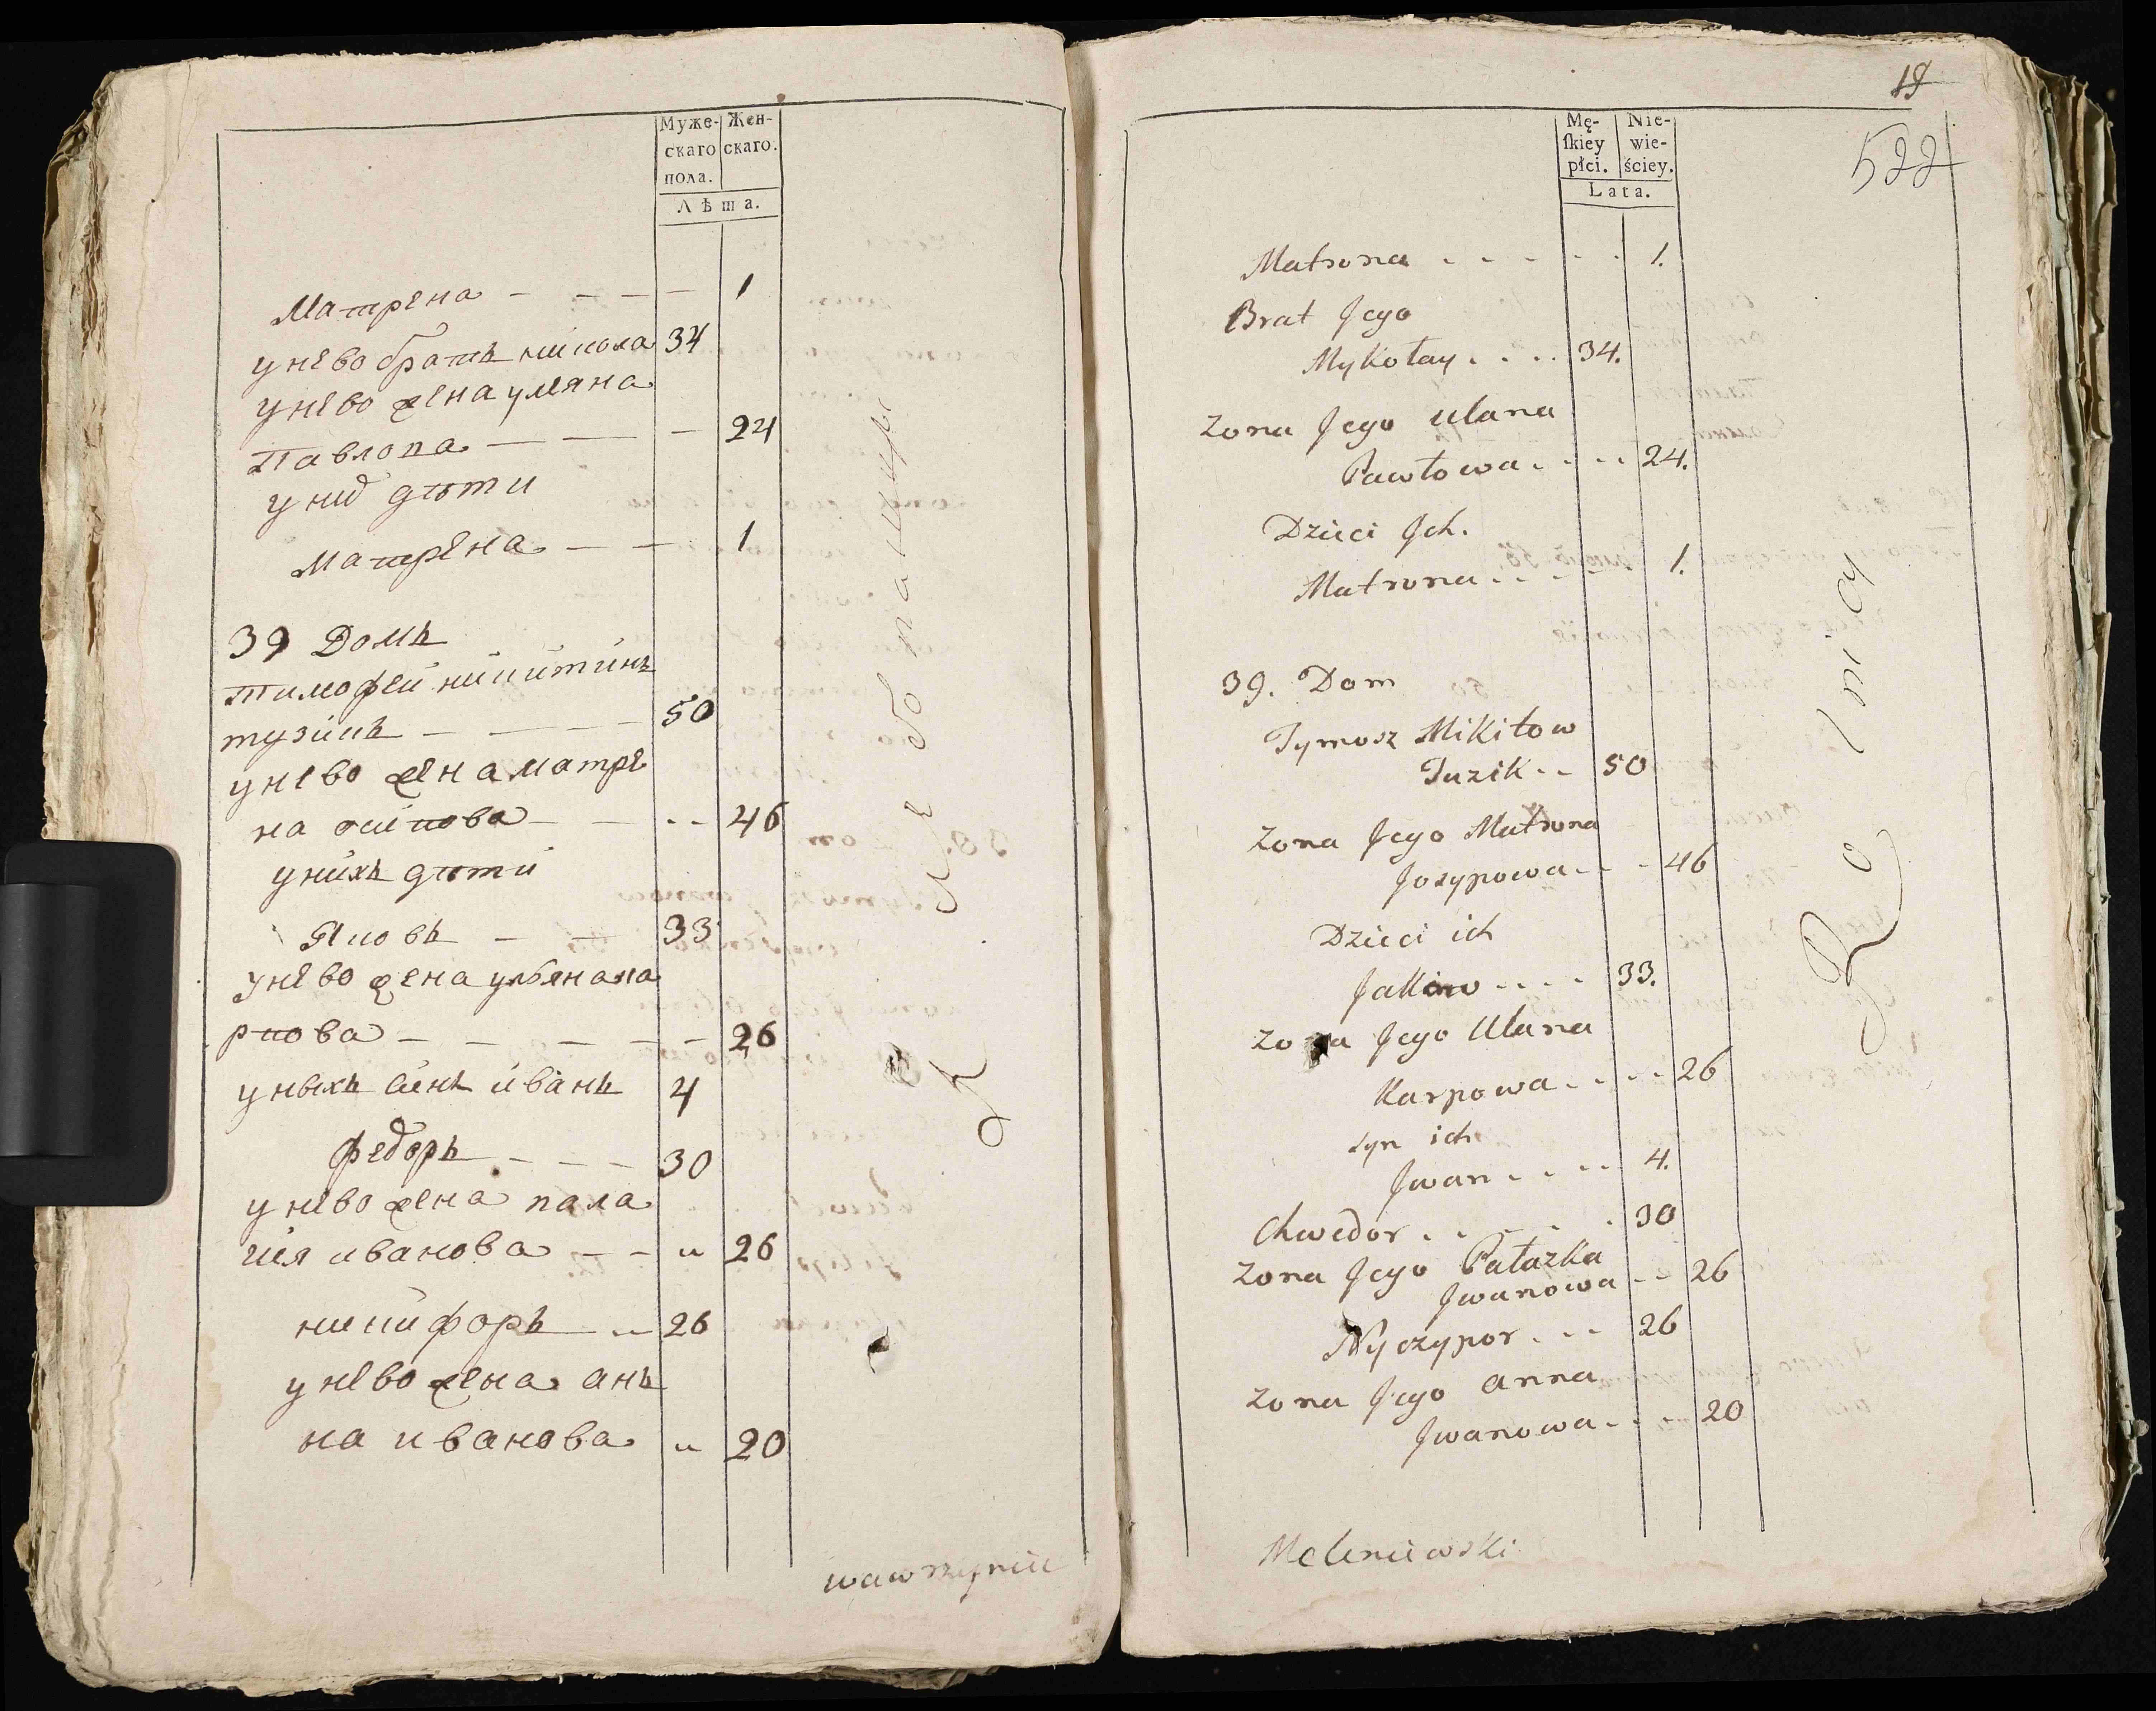 Муже-
скаго
пола.
Жен-
скаго.
Лѣта.
Матрена — — — — 1
у нево братъ никола 34
у нево жена уляна
Павлова — — — 24
у них дѣти
Матрена — — 1
39 Домъ
тимофей никитинъ
тузикъ — — — 50
у нево жена матре
на осипова — — 46
у нихъ дѣти
Яковъ — — 33
у нево жена ульяна ка
рпова — — — — — 26
у ныхъ синъ иванъ 4
федоръ — — — 30
у нево жена пала
гия иванова — — „ 26
никифоръ — 26
у нево жена анъ
на иванова „ 20
Хлебопашцы
wawrzyniec
18
522
Mę-
skiey
płci.
Nie-
wie-
ściey.
Lata.
Matrona . . . . . 1.
Brat Jego
Mykołay . . . . 34.
Zona Jego Ulana
Pawłowa . . . . 24.
Dzieci Jch.
Matrona . . . . 1.
39. Dom
Tymosz Mikitow
Tuzik . . 50
Zona Jego Matrona
Josypowa . . . 46
Dzieci ich
Jakow . . . . 33.
Zona Jego Ulana
Karpowa . . . . 26
syn ich
Jwan . . . . 4.
Chwedor . . . . . 30
Zona Jego Pałazka
Jwanowa . . 26
Nyczypor . . . 26
Zona Jego anna
Jwanowa . . . 20
Rolnicy
Meleniewski